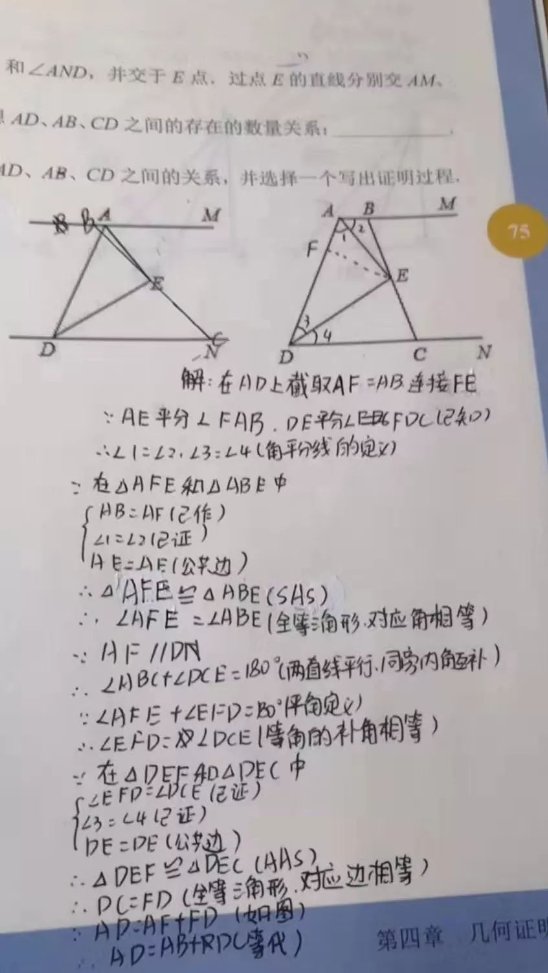 和∠AND，并交于E点．过点E的直线分别交AM、
AD、AB、CD之间的存在的数量关系：
AD、AB、CD之间的关系，并选择一个写出证明过程．
B A M
E
D N C
A B M
1 2
F
E
3 4
D C N
75
解:在AD上截取AF=AB连接FE
∵AE平分∠FAB.DE平分∠FDC(已知)
∴∠1=∠2,∠3=∠4(角平分线的定义)
∵在△AFE和△ABE中
AB=AF(已作)
∠1=∠2(已证)
AE=AE(公共边)
∴△AFE≌△ABE(SAS)
∴∠AFE=∠ABE(全等三角形.对应角相等)
∵AF//DN
∴∠ABC+∠DCE=180°(两直线平行.同旁内角互补)
∵∠AFE+∠EFD=180°(平角定义)
∴∠EFD=∠DCE(等角的补角相等)
∵在△DEF和△DEC中
∠EFD=∠DCE(已证)
∠3=∠4(已证)
DE=DE(公共边)
∴△DEF≌△DEC(AAS)
∴DC=FD(全等三角形.对应边相等)
∵AD=AF+FD(如图)
∴AD=AB+DC(等代)
第四章 几何证明